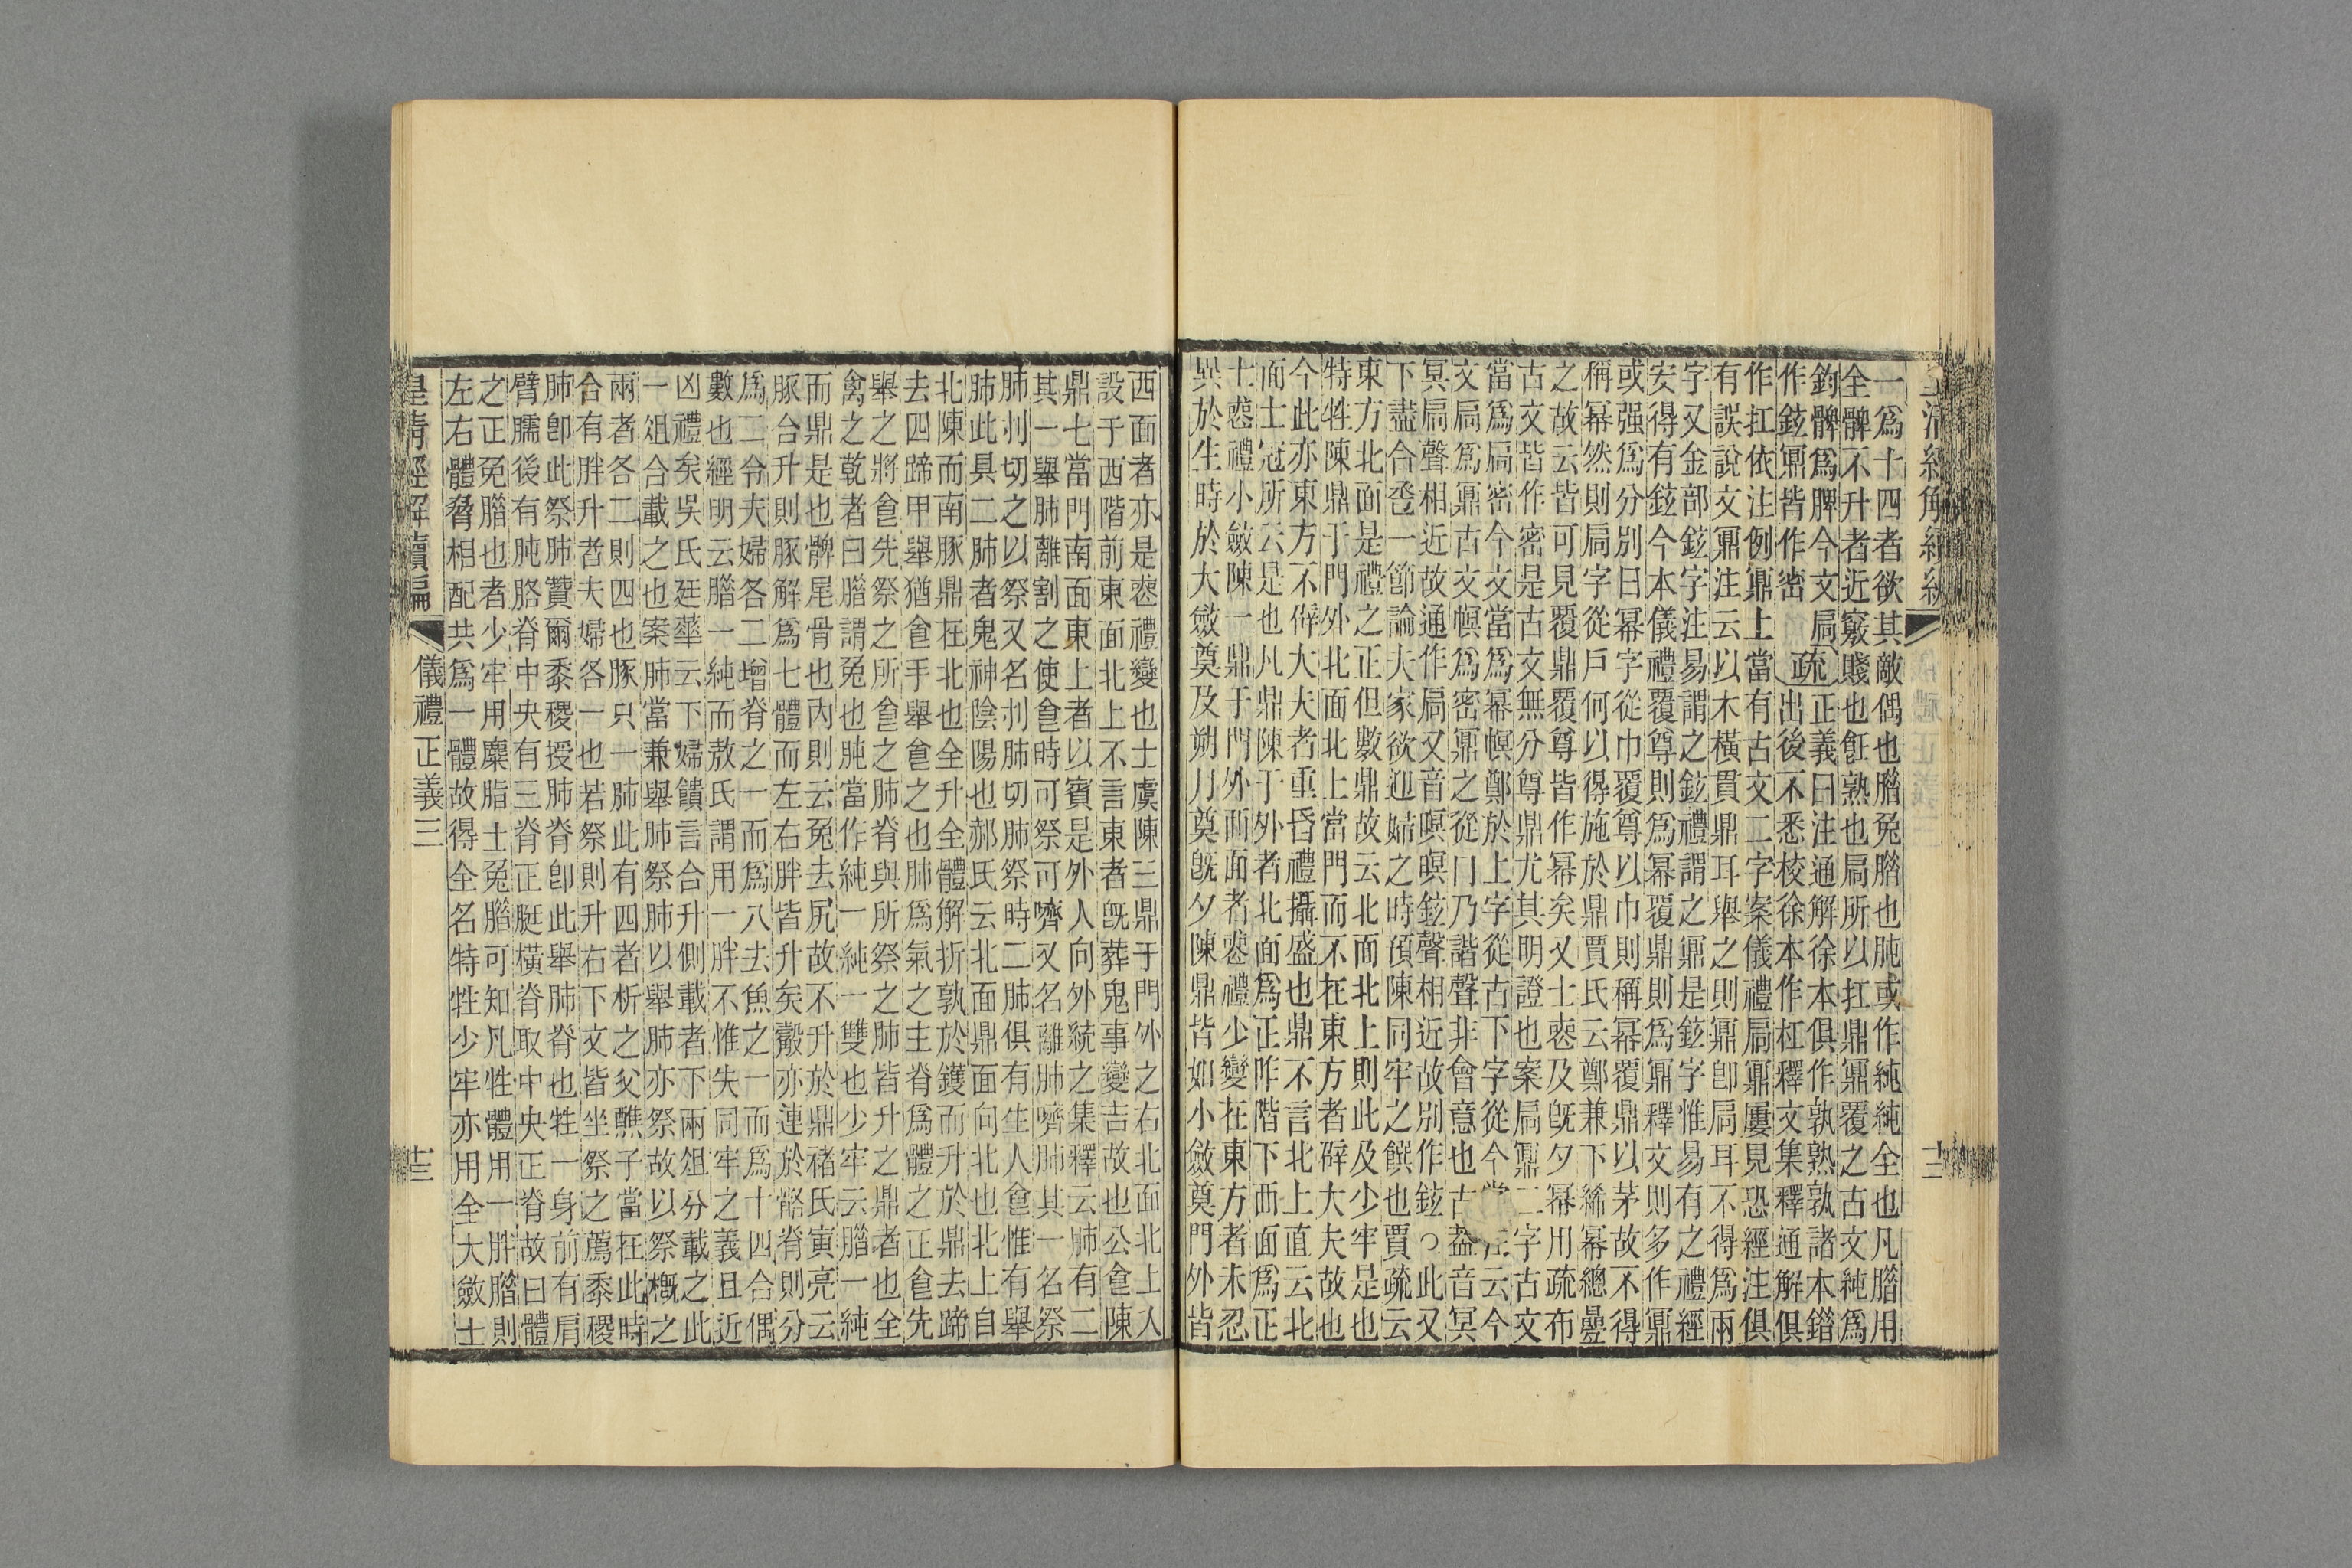 一爲十四者欲其敵偶也腊兔腊也肫或作純純全也凡腊用
全髀不升者近竅賤也飪熟也扃所以扛鼎鼏覆之古文純爲
鈞髀爲脾今文扃
作鉉鼏皆作密
疏
正義曰注通解徐本俱作孰熟孰諸本錯
出後不悉校徐本作杠釋文集釋通解俱
作扛依注例鼎上當有古文二字案儀禮扃鼏屢見恐經注俱
有誤說文鼏注云以木橫貫鼎耳舉之則鼏卽扃耳不得爲兩
字又金部鉉字注易謂之鉉禮謂之鼏是鉉字惟易有之禮經
安得有鉉今本儀禮覆尊則爲冪覆鼎則爲鼏釋文則多作鼏
或强爲分別曰冪字從巾覆尊以巾則稱冪覆鼎以茅故不得
稱冪然則扃字從戶何以得施於鼎賈氏云鄭兼下綌冪總疊
之故云皆可見覆鼎覆尊皆作冪矣又士喪及旣夕冪用疏布
古文皆作密是古文無分尊鼎尤其明證也案扃鼏二字古文
當爲扃密今文當爲冪幎鄭於上字從古下字從今當云今
文扃爲鼏古文幎爲密鼏之從冂乃諧聲非會意也古蓋音冥
冥扃聲相近故通作扃又音暝暝鉉聲相近故別作鉉此又
下盡合卺一節論夫家欲迎婦之時預陳同牢之饌也賈疏云
東方北面是禮之正但數鼎故云北面北上則此及少牢是也
特牲陳鼎于門外北面北上當門而不在東方者辟大夫故也
今此亦東方不辟大夫者重昏禮攝盛也鼎不言北上直云北
面士冠所云是也凡鼎陳于外者北面爲正阼階下西面爲正
士喪禮小斂陳一鼎于門外西面者喪禮少變在東方者未忍
異於生時於大斂奠及朔月奠旣夕陳鼎皆如小斂奠門外皆
西面者亦是喪禮變也士虞陳三鼎于門外之右北面北上人
設于西階前東面北上不言東者旣葬鬼事變吉故也公食陳
鼎七當門南面東上者以賓是外人向外統之集釋云肺有二
其一舉肺離割之使食時可祭可嚌又名離肺嚌肺其一名祭
肺刌切之以祭又名刌肺切肺祭時二肺俱有生人食惟有舉
肺此具二肺者鬼神陰陽也郝氏云北面鼎面向北也北上自
北陳而南豚鼎在北也全升全體解折孰於鑊而升於鼎去蹄
去四蹄甲舉猶食手舉食之也肺爲氣之主脊爲體之正食先
舉之將食先祭之所食之肺脊與所祭之肺皆升之鼎者也全
禽之乾者曰腊謂兔也肫當作純一純一雙也少牢云腊一純
而鼎是也髀尾骨也內則云兔去尻故不升於鼎褚氏寅亮云
豚合升則豚解爲七體而左右胖皆升矣觳亦連於骼脊則分
爲二令夫婦各二增脊之一而爲八去魚之一而爲十四合偶
數也經明云腊一純而敖氏謂用一胖不惟失同牢之義且近
凶禮矣吳氏廷華云下婦饋言合升側載者下兩俎分載之此
一俎合載之也案肺當兼舉肺祭肺以舉肺亦祭故以祭槪之
兩者各二則四也豚只一肺此有四者析之父醮子當在此時
合有胖升者夫婦各一也若祭則升右下文皆坐祭之薦黍稷
肺卽此祭肺贊爾黍稷授肺脊卽此舉肺脊也牲一身前有肩
臂臑後有肫胳脊中央有三脊正脡橫脊取中央正脊故曰體
之正兔腊也者少牢用麋腊士兔腊可知凡牲體用一胖腊則
左右體脅相配共爲一體故得全名特牲少牢亦用全大斂士
皇清經解續編
儀禮正義三